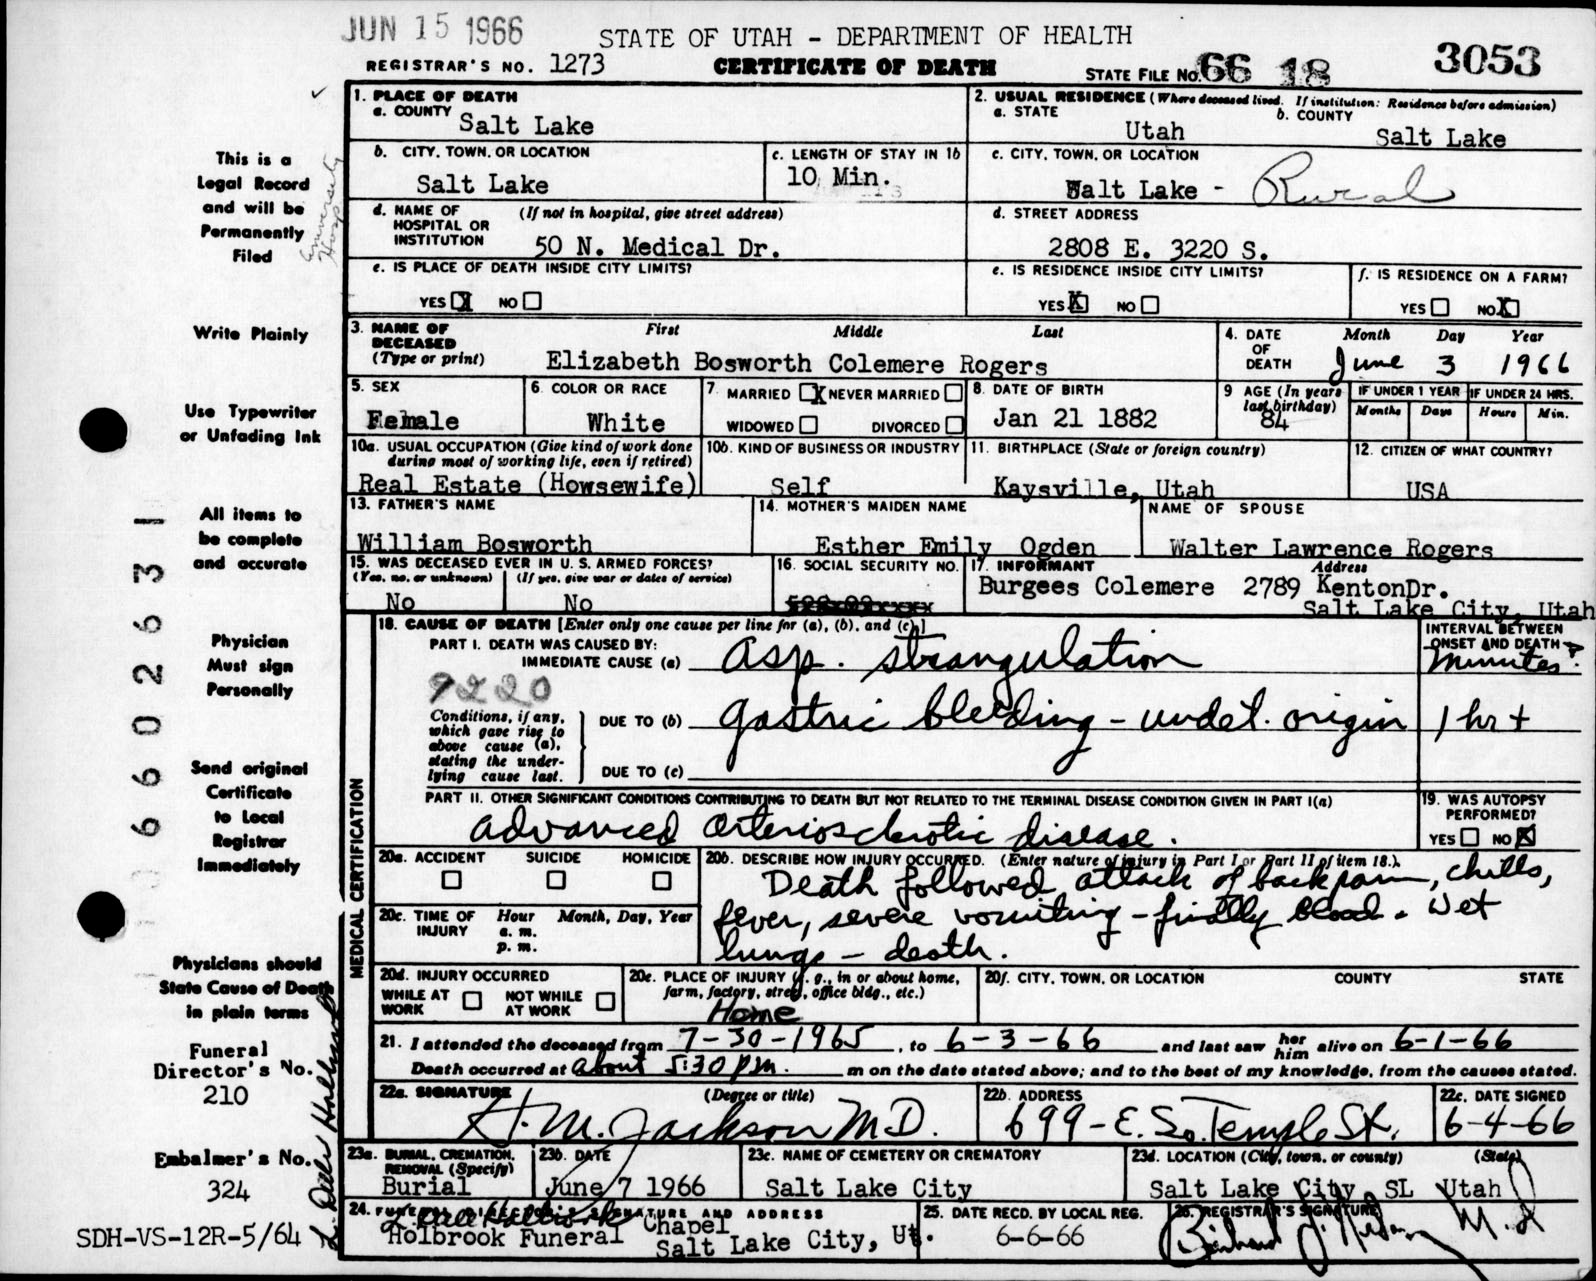 JUN 15 1966
STATE OF UTAH - DEPARTMENT OF HEALTH
REGISTRAR'S NO. 1273
CERTIFICATE OF DEATH
STATE FILE NO. 66 18 3053
1. PLACE OF DEATH
a. COUNTY Salt Lake
2. USUAL RESIDENCE (Where deceased lived. If institution: Residence before admission)
a. STATE Utah
b. COUNTY Salt Lake
b. CITY, TOWN, OR LOCATION
Salt Lake
c. LENGTH OF STAY IN 1b
10 Min.
c. CITY, TOWN, OR LOCATION
Salt Lake - Rural
d. NAME OF HOSPITAL OR INSTITUTION (If not in hospital, give street address)
50 N. Medical Dr.
d. STREET ADDRESS
2808 E. 3220 S.
e. IS PLACE OF DEATH INSIDE CITY LIMITS?
YES X NO
e. IS RESIDENCE INSIDE CITY LIMITS?
YES X NO
f. IS RESIDENCE ON A FARM?
YES NO X
3. NAME OF DECEASED (Type or print)
First Middle Last
Elizabeth Bosworth Colemere Rogers
4. DATE OF DEATH
Month Day Year
June 3 1966
5. SEX
Female
6. COLOR OR RACE
White
7. MARRIED X NEVER MARRIED
WIDOWED DIVORCED
8. DATE OF BIRTH
Jan 21 1882
9 AGE (In years last birthday)
84
IF UNDER 1 YEAR
Months Days
IF UNDER 24 HRS.
Hours Min.
10a. USUAL OCCUPATION (Give kind of work done during most of working life, even if retired)
Real Estate (Howsewife)
10b. KIND OF BUSINESS OR INDUSTRY
Self
11. BIRTHPLACE (State or foreign country)
Kaysville, Utah
12. CITIZEN OF WHAT COUNTRY?
USA
13. FATHER'S NAME
William Bosworth
14. MOTHER'S MAIDEN NAME
Esther Emily Ogden
NAME OF SPOUSE
Walter Lawrence Rogers
15. WAS DECEASED EVER IN U. S. ARMED FORCES?
(Yes, no, or unknown) (If yes, give war or dates of service)
No No
16. SOCIAL SECURITY NO.
17. INFORMANT Address
Burgees Colemere 2789 KentonDr.
Salt Lake City, Utah
18. CAUSE OF DEATH [Enter only one cause per line for (a), (b), and (c).]
INTERVAL BETWEEN ONSET AND DEATH
PART I. DEATH WAS CAUSED BY:
IMMEDIATE CAUSE (a) Asp. strangulation
minutes?
9220
Conditions, if any, which gave rise to above cause (a), stating the underlying cause last.
DUE TO (b) gastric bleeding - undet. origin
1 hr +
DUE TO (c)
PART II. OTHER SIGNIFICANT CONDITIONS CONTRIBUTING TO DEATH BUT NOT RELATED TO THE TERMINAL DISEASE CONDITION GIVEN IN PART I(a)
advanced arteriosclerotic disease.
19. WAS AUTOPSY PERFORMED?
YES NO X
MEDICAL CERTIFICATION
20a. ACCIDENT SUICIDE HOMICIDE
20b. DESCRIBE HOW INJURY OCCURRED. (Enter nature of injury in Part I or Part II of item 18.)
Death followed attack of back pain, chills,
fever, severe vomiting - finally blood. Wet
lungs - death.
20c. TIME OF INJURY
Hour Month, Day, Year
a. m.
p. m.
20d. INJURY OCCURRED
WHILE AT WORK NOT WHILE AT WORK
20e. PLACE OF INJURY (e. g., in or about home, farm, factory, street, office bldg., etc.)
Home
20f. CITY, TOWN, OR LOCATION COUNTY STATE
21. I attended the deceased from 7-30-1965, to 6-3-66 and last saw her him alive on 6-1-66
Death occurred at about 5:30 pm. m on the date stated above; and to the best of my knowledge, from the causes stated.
22a. SIGNATURE (Degree or title)
H. M. Jackson M.D.
22b. ADDRESS
699 - E. So. Temple St.
22c. DATE SIGNED
6-4-66
23a. BURIAL, CREMATION, REMOVAL (Specify)
Burial
23b. DATE
June 7 1966
23c. NAME OF CEMETERY OR CREMATORY
Salt Lake City
23d. LOCATION (City, town, or county) (State)
Salt Lake City SL Utah
24. FUNERAL DIRECTOR'S SIGNATURE AND ADDRESS
L. Dale Holbrook
Holbrook Funeral Chapel
Salt Lake City, Ut.
25. DATE RECD. BY LOCAL REG.
6-6-66
26. REGISTRAR'S SIGNATURE
This is a
Legal Record
and will be
Permanently
Filed
University
Hosp
Write Plainly
Use Typewriter
or Unfading Ink
All items to
be complete
and accurate
Physician
Must sign
Personally
Send original
Certificate
to Local
Registrar
Immediately
Physicians should
State Cause of Death
in plain terms
Funeral
Director's No.
210
Embalmer's No.
324
L. Dale Holbrook
SDH-VS-12R-5/64